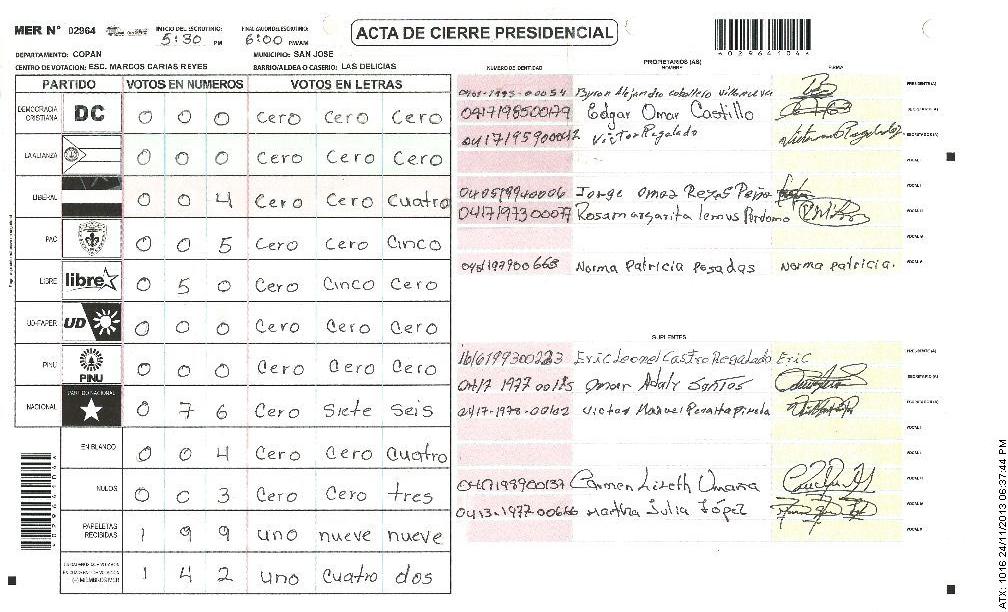 MER Nº 02964
INICIO DEL ESCRUTINIO: 5:30 PM
FINALIZACION DEL ESCRUTINIO: 6:00 PM/AM
ACTA DE CIERRE PRESIDENCIAL
4029641044
DEPARTAMENTO: COPAN
MUNICIPIO: SAN JOSE
CENTRO DE VOTACION: ESC. MARCOS CARIAS REYES
BARRIO/ALDEA O CASERIO: LAS DELICIAS
PARTIDO VOTOS EN NUMEROS VOTOS EN LETRAS
DEMOCRACIA CRISTIANA DC 0 0 0 Cero Cero Cero
LA ALIANZA 0 0 0 Cero Cero Cero
LIBERAL 0 0 4 Cero Cero Cuatro
PAC 0 0 5 Cero Cero Cinco
LIBRE libre 0 5 0 Cero Cinco Cero
UD-FAPER UD 0 0 0 Cero Cero Cero
PINU PINU 0 0 0 Cero Cero Cero
NACIONAL PARTIDO NACIONAL 0 7 6 Cero Siete Seis
EN BLANCO 0 0 4 Cero Cero Cuatro
NULOS 0 0 3 Cero Cero tres
PAPELETAS RECIBIDAS 1 9 9 uno nueve nueve
(+) MIEMBROS MER 1 4 2 uno Cuatro dos
PROPIETARIOS (AS)
NUMERO DE IDENTIDAD NOMBRE FIRMA
Byron Alejandro caballero villanueva PRESIDENTE(A)
0417198500179 Edgar Omar Castillo SECRETARIO(A)
0417195900042 Victor Regalado ESCRUTADOR(A)
VOCAL I
040519940006 Jorge Omar Reyes Peña VOCAL II
0417197300077 Rosamargarita lemus Perdomo VOCAL III
VOCAL IV
Norma Patricia Posadas Norma patricia. VOCAL V
SUPLENTES
Eric Leonel Castro Regalado Eric PRESIDENTE(A)
Omar Adaly Santos SECRETARIO(A)
Victor Manuel Peraita Pineda ESCRUTADOR(A)
VOCAL I
VOCAL II
0417198900137 Carmen Lizeth VOCAL III
0413-1977-00666 Martha Julia López VOCAL IV
VOCAL V
ATX: 1016 24/11/2013 06:37:44 PM